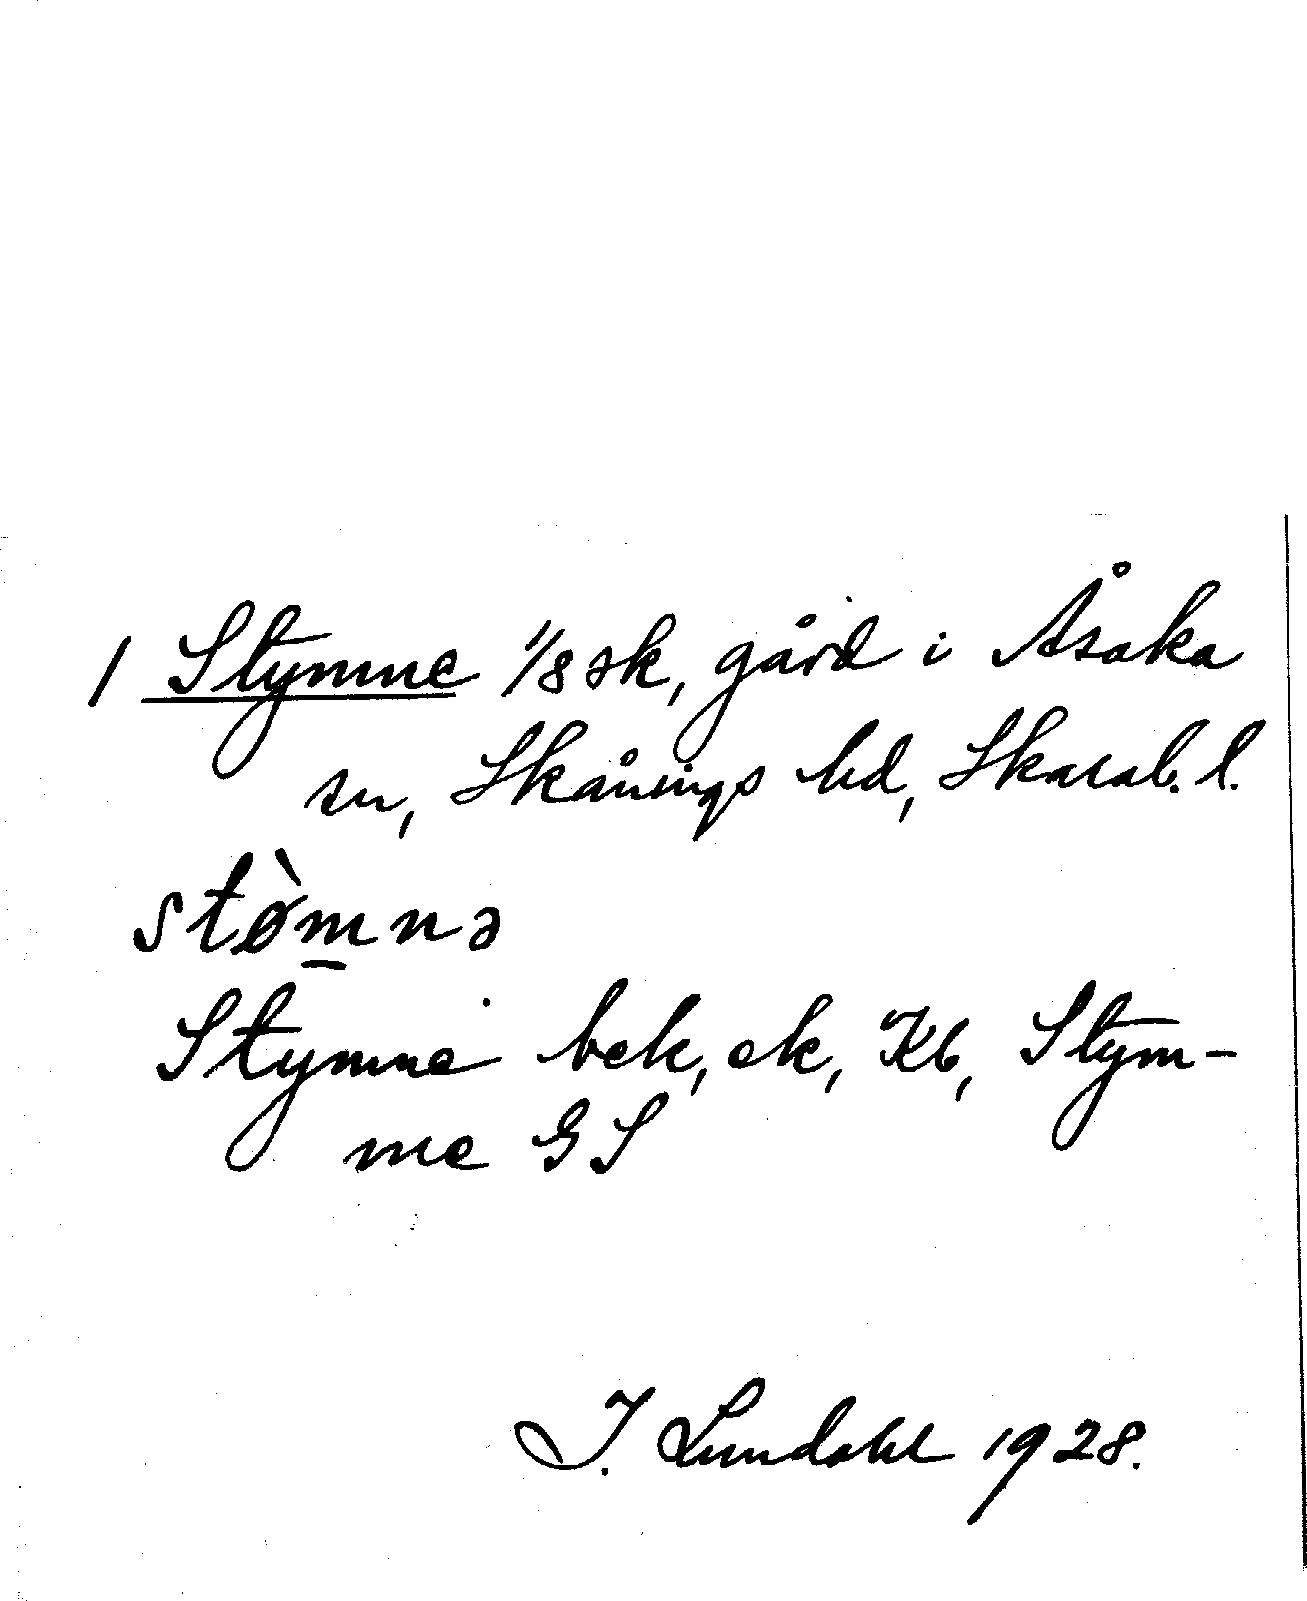 1 Stymne 1/8 sk, gård i Åsaka
sn, Skånings hd, Skarab. l.
stø̀m̲nə
Stymne bek, ek, Kb, Stym-
me GS
I. Lundahl 1928.